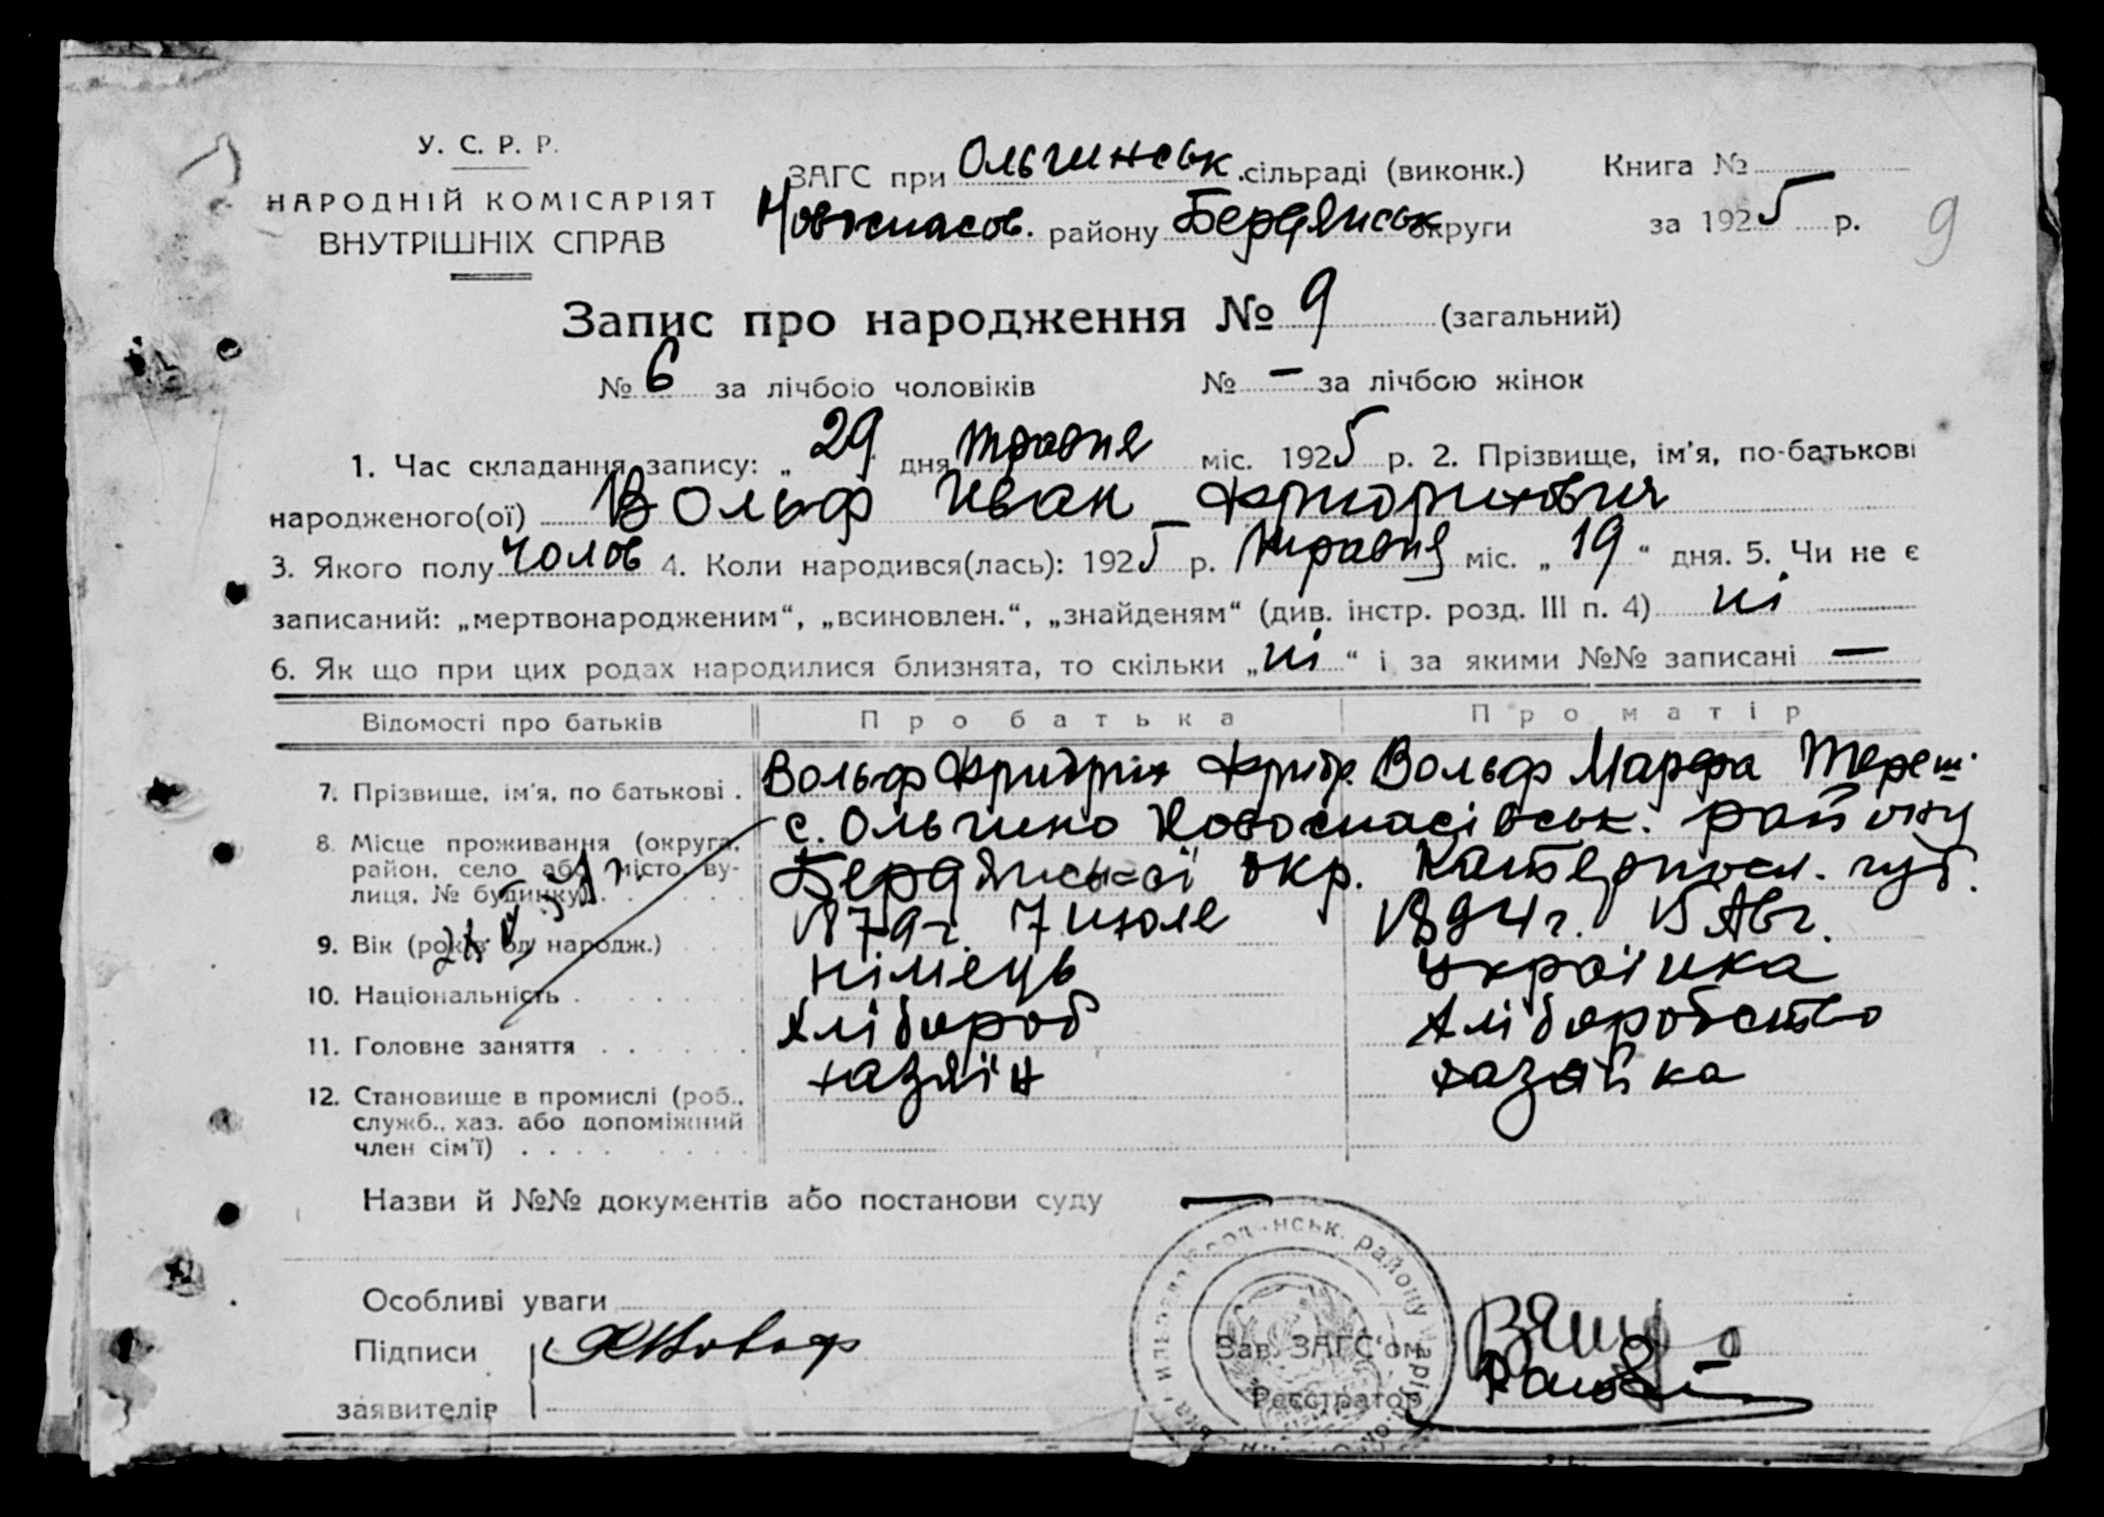 У. С. Р. Р.
НАРОДНІЙ КОМІСАРІЯТ
ВНУТРІШНІХ СПРАВ
ЗАГС при Ольгинськ. сільраді (виконк.)
Новоспасов. району Бердянськ округи
Книга №
за 1925 р.
9
Запис про народження № 9 (загальний)
№ 6 за лічбою чоловіків № — за лічбою жінок
1. Час складання запису: „ 29 дня травня міс. 1925 р. 2. Прізвище, ім'я, по-батькові
народженого(ої) Вольф Иван Фридрихович
3. Якого полу чолов 4. Коли народився(лась): 1925 р. травня міс. „ 19 “ дня. 5. Чи не є
записаний: „мертвонародженим“, „всиновлен.“, „знайденям“ (див. інстр. розд. III п. 4) ні
6. Як що при цих родах народилися близнята, то скільки „ ні “ і за якими №№ записані —
Відомості про батьків Про батька Про матір
7. Прізвище, ім'я, по батькові . Вольф Фридрих Фридр. Вольф Марфа Тереш.
8. Місце проживання (округа, район, село або місто, вулиця, № будинку) с. Ольгино Новоспасівськ. району
Бердянської окр. Катериносл. губ.
9. Вік (років од народж.) 1879 г. 7 июля 1894 г. 15 Авг.
10. Національність німець українка
11. Головне заняття хлібороб хліборобство
12. Становище в промислі (роб., служб., хаз. або допоміжний член сім'ї) хазяїн хазяйка
Назви й №№ документів або постанови суду —
Особливі уваги
Підписи
заявителів
Зав. ЗАГС'ом
Реєстратор
нськ. району